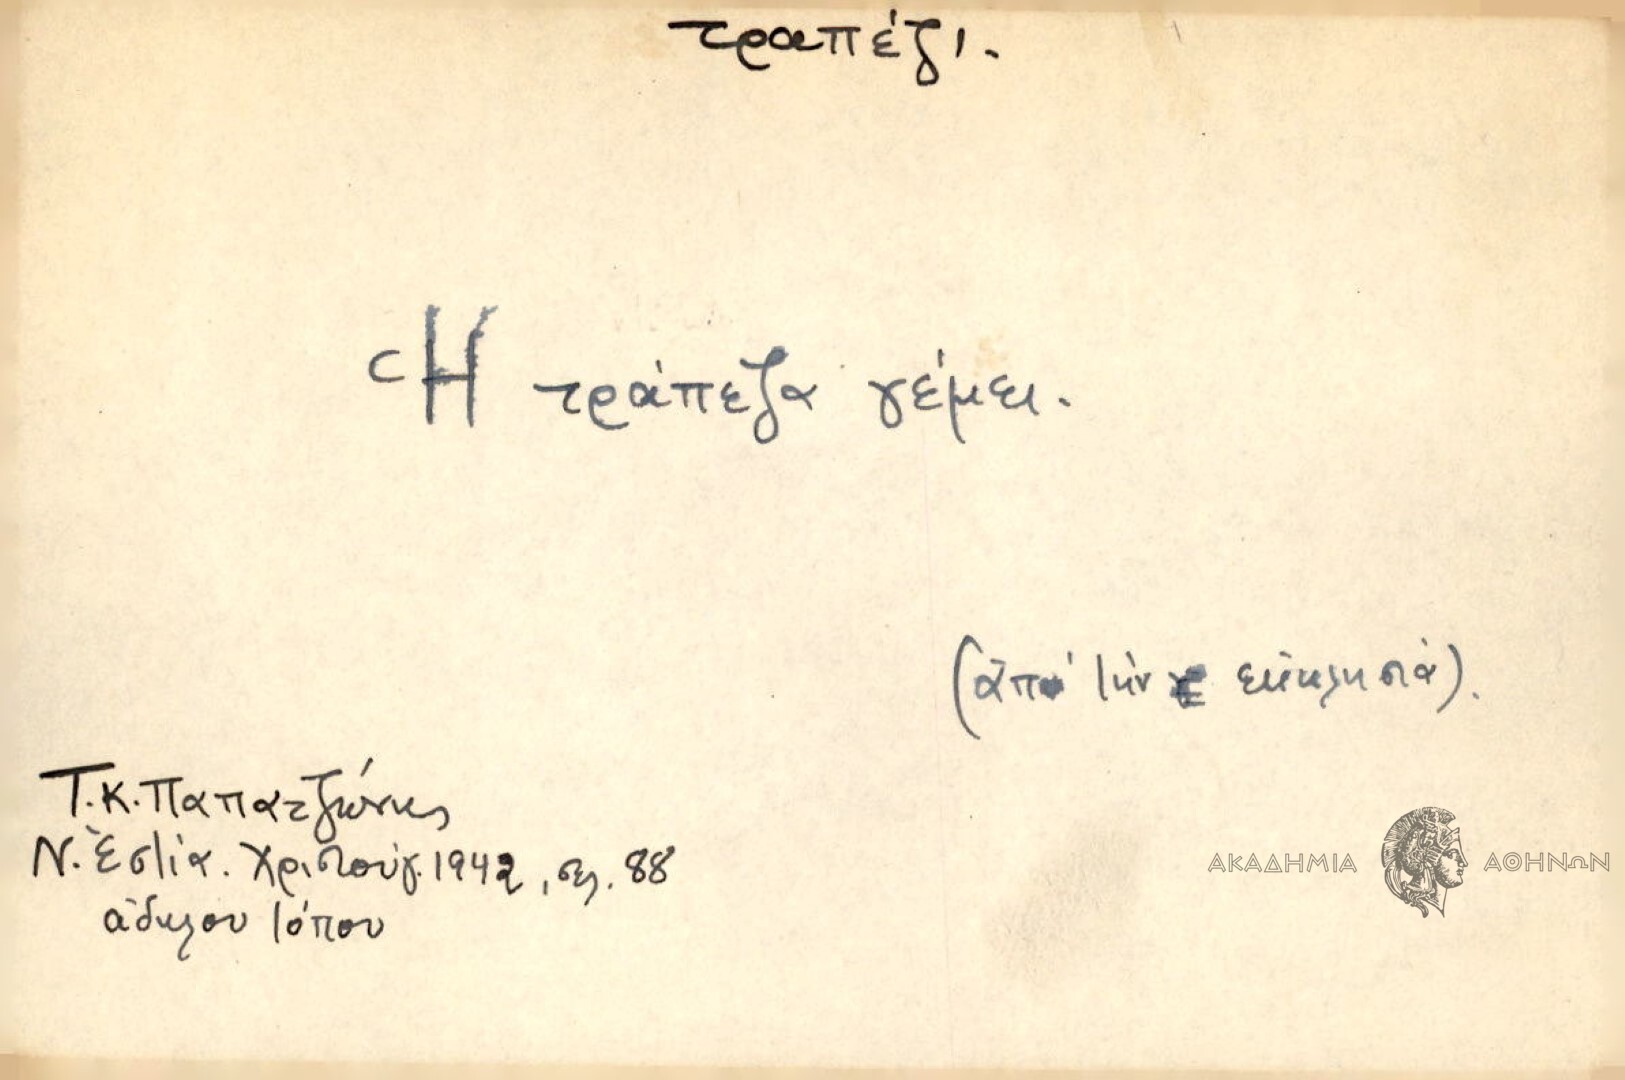 τραπέζι.
Ἡ τράπεζα γέμει.
(ἀπό τὴν ἐκκλησιά).
Τ.Κ. Παπατζώνης
Ν. Ἑστία. Χριστούγ. 1942, σελ. 88
ἀδήλου τόπου
ΑΚΑΔΗΜΙΑ ΑΘΗΝΩΝ